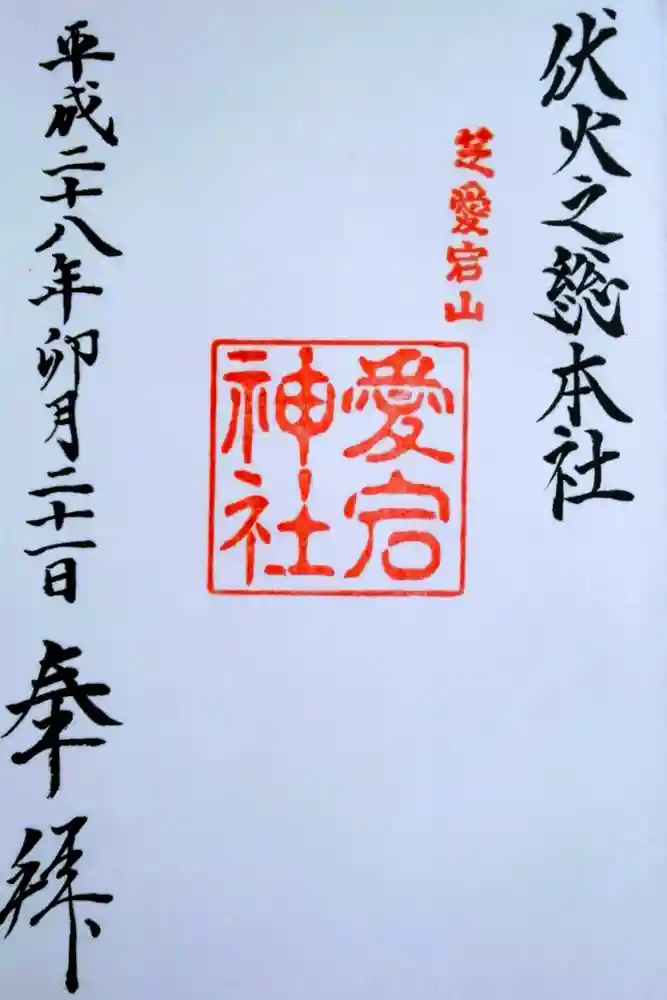 伏火之総本社
芝愛宕山
愛宕
神社
平成二十八年卯月二十一日
奉拝